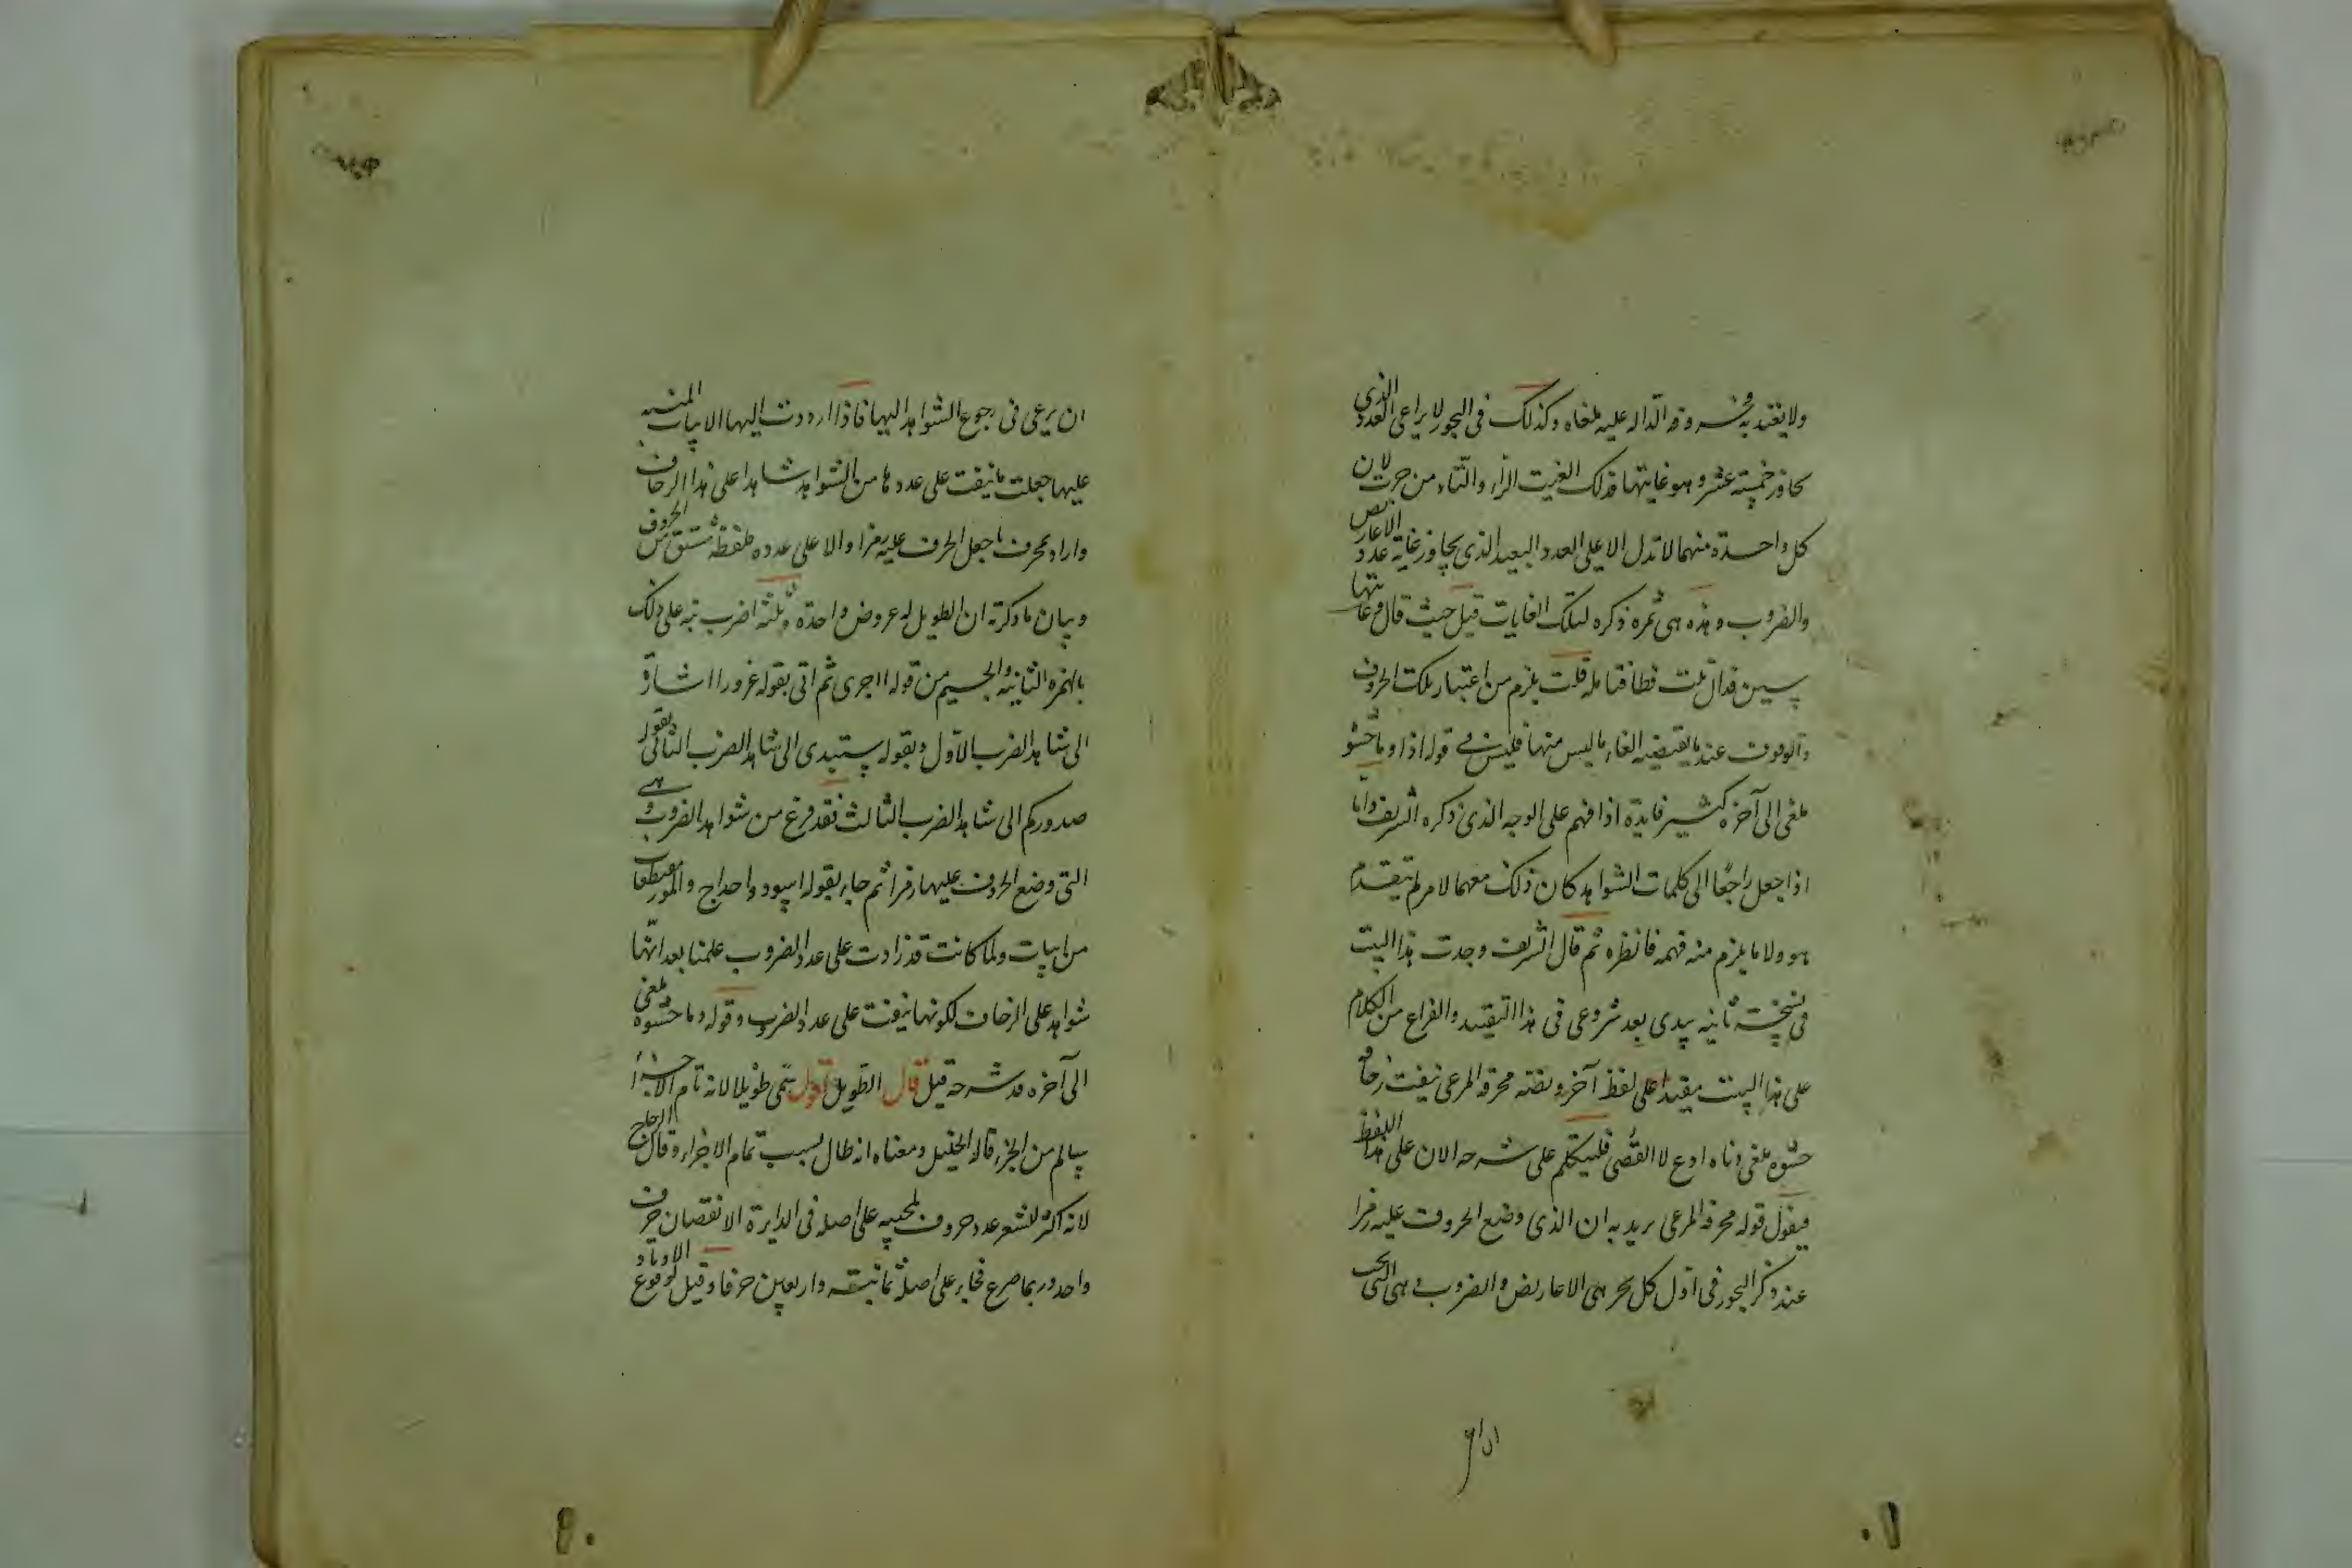 ولا يعتد به وحروفه الدالة عليه ملغاه وكذلك في البحور لا يراعى العدد الذي
يجاوز خمسة عشر وهو غايتها فذلك الغيت الزاء والثاء من حرث لان
كل واحدة منهما لا تدل الا على العدد البعيد الذي يجاوز غاية عدد الاعاريض
والضروب وهذه هي ثمرة ذكره لتلك الغايات قبل حيث قال وغايتها
سين فدال تلت فطا فتأمله قلت يلزم من اعتبار تلك الحروف
والوقوف عند ما يقتضيه الغاء ما ليس منها فليس في قوله اذا وما حشو
ملغى الى آخره كثير فايدة اذا فهم على الوجه الذي ذكره الشريف واما
اذا جعل راجعا الى كلمات الشواهد كان ذلك معهما لامر لم يتقدم
هو ولا ما يلزم منه فهمه فانظره ثم قال الشريف وجدت هذا البيت
في نسخة ثانية بيدي بعد شروعي في هذا التقييد والفراغ من الكلام
على هذا البيت مقيدا على لفظ آخر ونصه محرفه المرعى نيفت زحافه
حشوه ملغى اوع لا القصى فلنتكلم على شرحه الان على هذا اللفظ
فيقول قوله محرفه المرعى يريد به ان الذي وضع الحروف عليه رمزا
عند ذكر البحور في اول كل بحر هي الاعاريض والضروب وهي التي يجب
ان يرعى في رجوع الشواهد اليها فاذا ارددت اليها الابيات المنبه
عليها جعلت ما نيفت على عددها من الشواهد شاهدا على هذا الزحاف
واراد بمحرف ما جعل الحرف عليه رمزا والا على عدده فلفظه مشتق من الحروف
وبيان ما ذكرته ان الطويل له عروض واحدة وثلثة اضرب نبه على ذلك
بالهمزة الثانية والجيم من قوله ااجرى ثم اتى بقوله غرورا اشارة
الى شاهد الضرب الاول وبقوله ستبدي الى شاهد الضرب الثاني بقوله
صدوركم الى شاهد الضرب الثالث فقد فرغ من شواهد الضروب وهي
التي وضع الحروف عليها رمزا ثم جاء بقوله اسود واحداج والمور مقتطعا
من ابيات ولما كانت قد زادت على عدد الضروب علمنا بعد انها
شواهد على الزحاف لكونها نيفت على عدد الضروب وقوله وما حشوه ملغى
الى آخره قد شرحه قبل قال الطويل اقول سمى طويلا لانه تام الاجزا
سالم من الجزء قاله الخليل ومعناه انه طال بسبب تمام الاجزاء وقال الزجاج
لانه اكثر الشعر عدد حروف لمجيه على اصله في الدايرة الا نقصان حرف
واحد وربما صرع فجاء على اصله ثمانية واربعين حرفا وقيل لوقوع الاوتاد
اداو